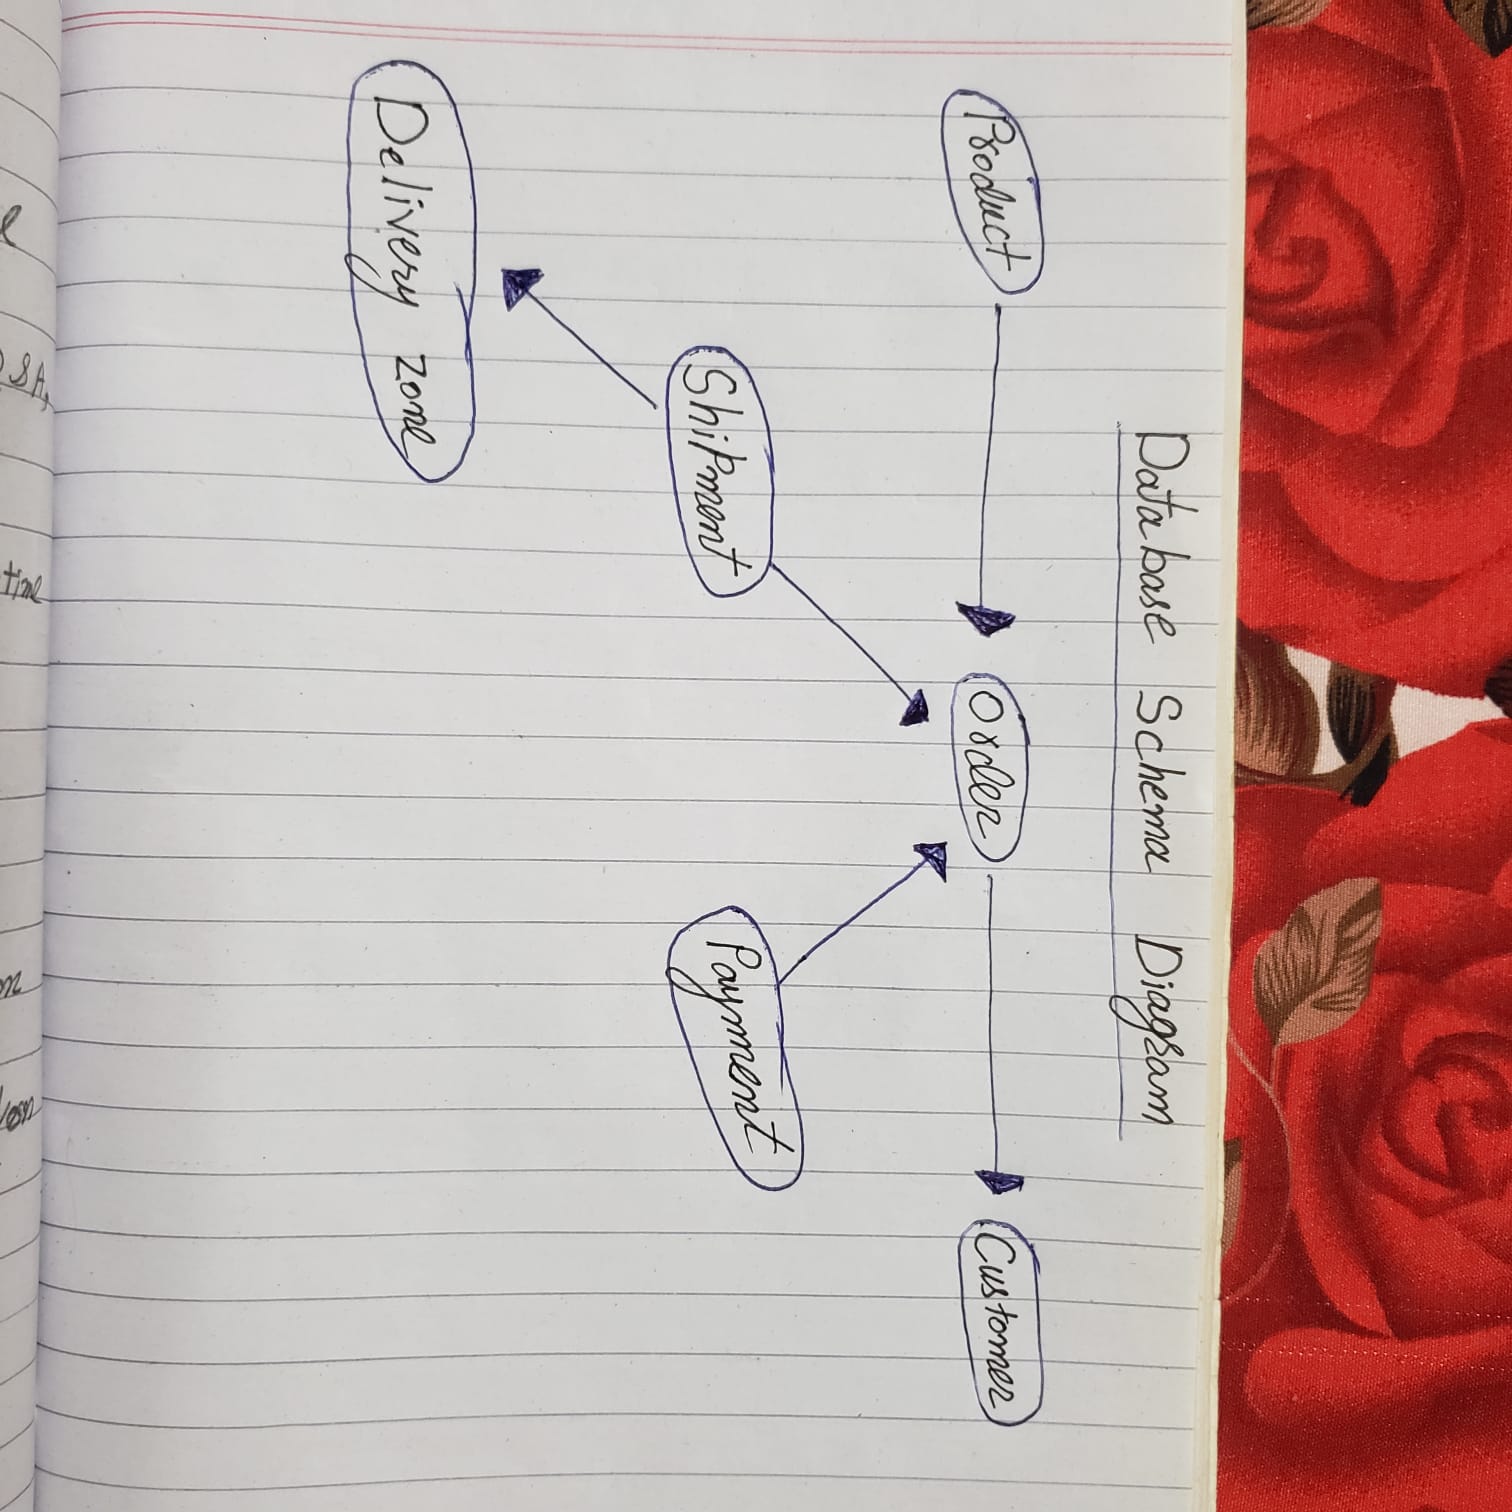 Database Schema Diagram
Product
Order
Customer
Shipment
Payment
Delivery zone
time